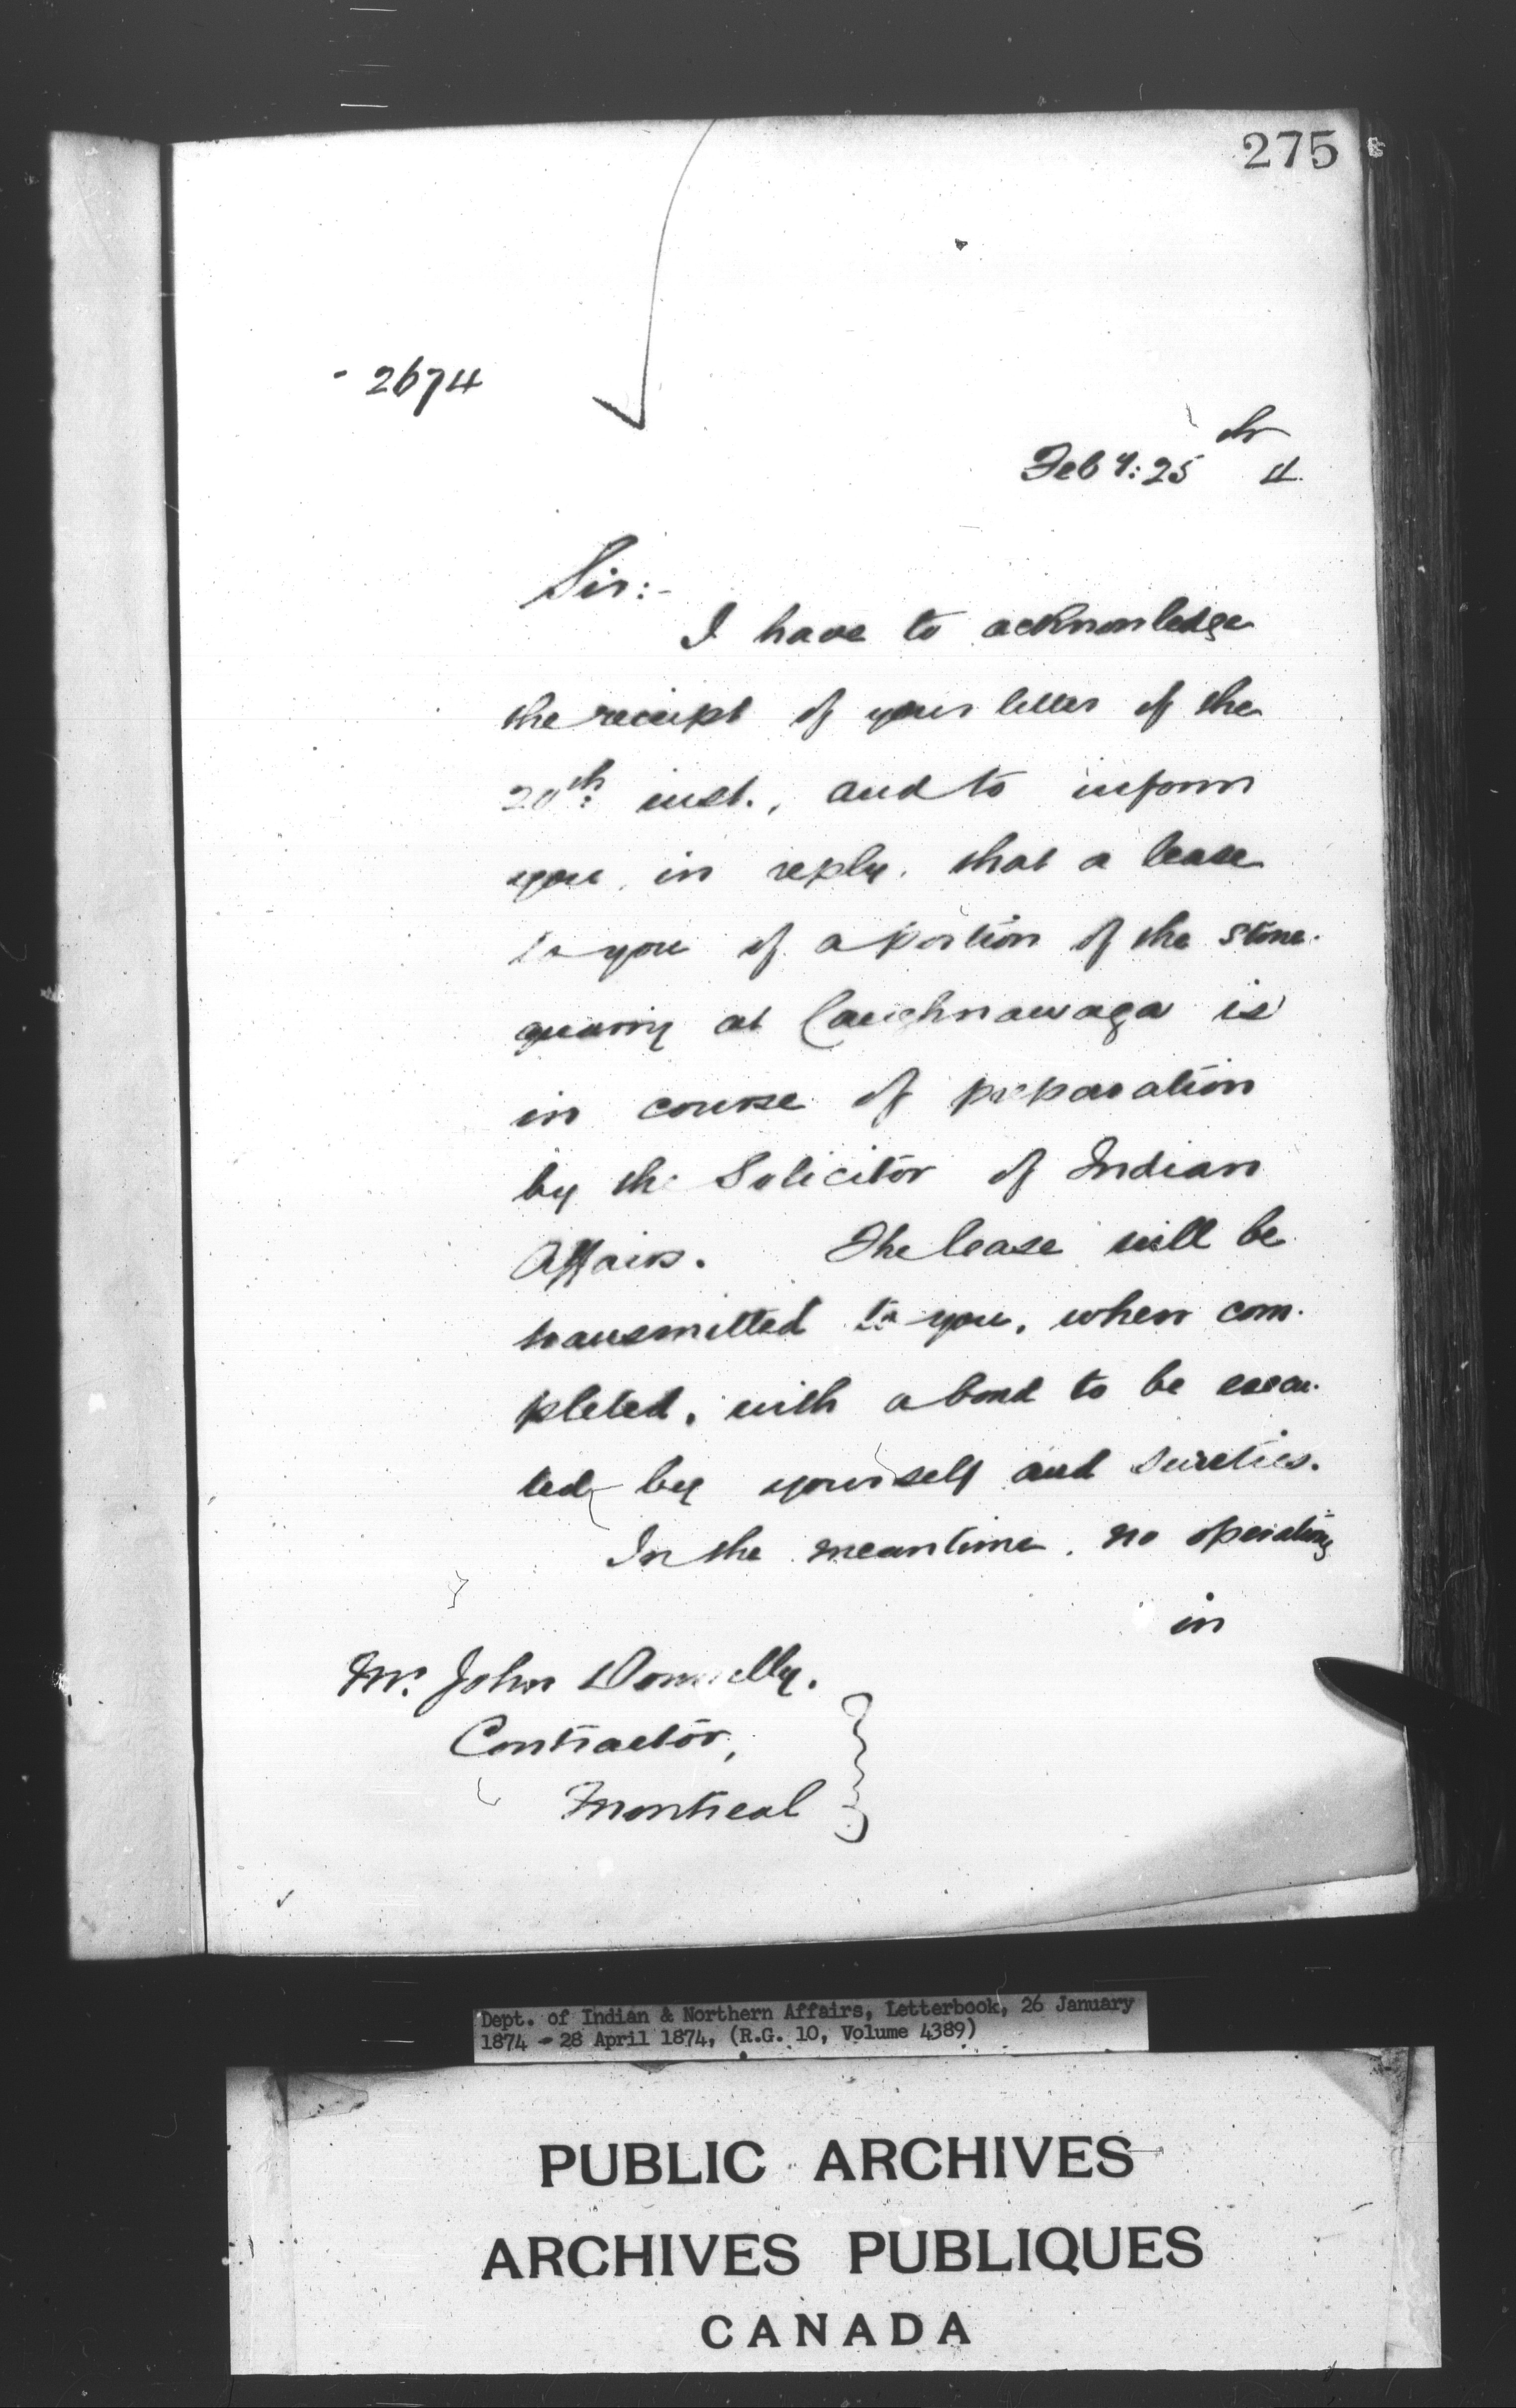 275
2674
Feby: 25th 4
Sir:-
I have to acknowledge
the receipt of your letter of the
20th inst., and to inform
you, in reply, that a lease
to you of a portion of the stone
quarry at Caughnawaga is
in course of preparation
by the Solicitor of Indian
Affairs. The lease will be
transmitted to you, when com-
pleted, with a bond to be execu-
ted by yourself and Sureties.
In the meantime, no operations
in
Mr. John Donnelly,
Contractor,
Montreal
Dept. of Indian & Northern Affairs, Letterbook, 26 January
1874 - 28 April 1874, (R.G. 10, Volume 4389)
PUBLIC ARCHIVES
ARCHIVES PUBLIQUES
CANADA